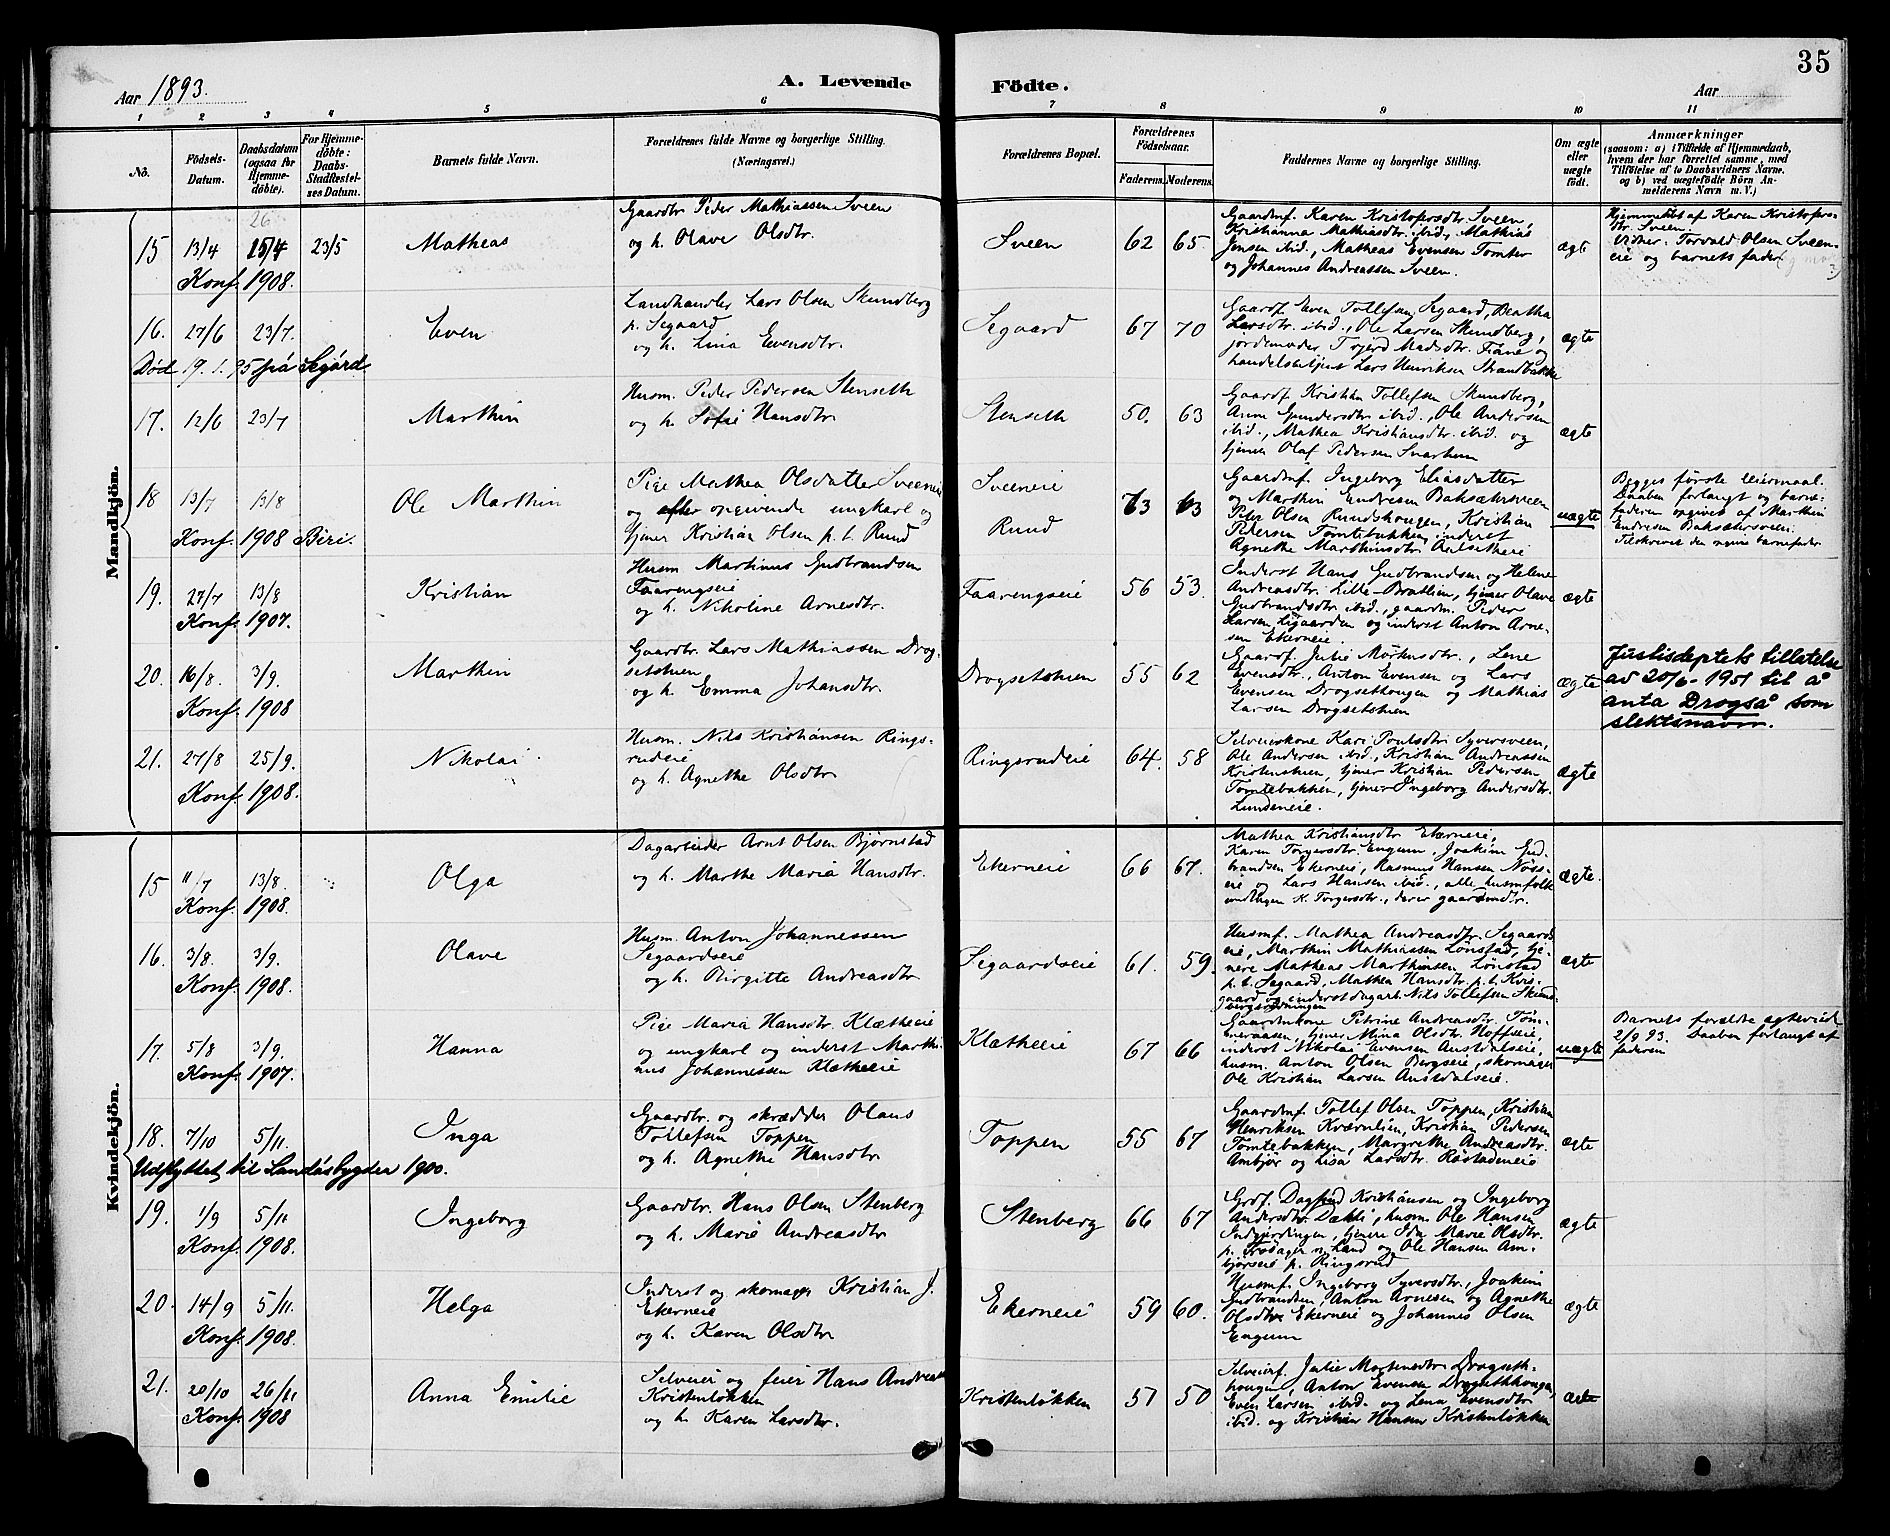 35
Aar 1893.
A. Levende
Födte.
Aar
1 2 3 4 5 6 7 8 9 10 11
No.
Födsels-Datum.
Daabsdatum (ogsaa for Hjemme-döbte).
For Hjemme-döbte: Daabs-Stadfæstel-ses Datum.
Barnets fulde Navn.
Forældrenes fulde Navne og borgerlige Stilling.
(Næringsvei.)
Forældrenes Bopæl.
Forældrenes Födselsaar.
Faderens. Moderens.
Faddernes Navne og borgerlige Stilling.
Om ægte eller uægte födt.
Anmærkninger
(saasom: a) i Tilfælde af Hjemmedaab,
hvem der har forrettet samme, med
Tilföielse af to Daabsvidners Navne.
og b) ved uægtefödte Börn An-
melderens Navn m. V.)
Mandkjön.
26
15 13/4 15/4 23/5 Matheas
Konf. 1908.
Gaardbr. Peder Mathiassen Sveen
og h. Olave Olsdtr.
Sveen 62 65
Gaardmf. Karen Kristofersdtr. Sveen,
Kristianna Mathiasdtr. ibid., Mathias
Jensen ibid., Matheas Evensen Tomter
og Johannes Andreassen Sveen.
ægte
Hjemmedøbt af Karen Kristofers-
dtr. Sveen.
Vidner: Torvald Olsen Sveen-
eie og barnets fader
16. 27/6 23/7. Even
Død 19.1.95 på Segård
Landhandler Lars Olsen Skundberg
p. Segaard
og h. Lina Evensdtr.
Segaard 67 70
Gaardf. Even Tollefsen Segaard, Beatha
Larsdtr. ibid., Ole Larsen Skundberg,
jordemoder Madsdtr. Fiane og
handelsbetjent Lars Henriksen Strandbakke
ægte
17. 12/6 23/7 Marthin
Husm. Peder Pedersen Stenseth
og h. Sofie Hansdtr.
Stenseth 50. 63
Gaardf. Kristian Tollefsen Skundberg,
Anne Gundersdtr. ibid., Ole Andersen
ibid., Mathea Kristiansdtr. ibid. og
tjener Olaf Pedersen Svarthum
ægte
18 13/7 13/8 Ole Marthin
Konf. 1908 Biri.
Pige Mathea Olsdatter Sveeneie
og efter opgivende ungkarl og
tjener Kristian Olsen p. t. Rund
Sveeneie
Rund
73 63
Gaardmf. Ingeborg Eliasdatter
og Marthin Endresen Baksætersveen
Peter Olsen Rundshaugen, Kristian
Pedersen Tomtebakken, inderst
Agnethe Marthinsdtr.
uægte
Begges første leiermaal.
Daaben forlangt og barne-
faderen opgivet af Marthin
Endresen Baksætersveen.
Tilskrevet den opgivne barnefader.
19. 27/7 13/8 Kristian
Konf. 1907.
Husm. Martinus Gudbrandsen
Faarengseie
og h. Nikoline Arnesdtr.
Faarengseie 56 53.
Inderst Hans Gudbrandsen og Helene
Andreasdtr. Lille-Bratlien, tjener Olave
Gudbrandsdtr. ibid., gaardm. Peder
Larsen Ligaarden og inderst Anton Arne-
sen Ekerneie.
ægte
20. 16/8. 3/9. Marthin
Konf. 1908
Gaardbr. Lars Mathiassen Drog-
setstuen
og h. Emma Johansdtr.
Drogsetstuen 55 62
Gaardf. Julie Mortensdtr., Lene
Evensdtr., Anton Evensen og Lars
Evensen Drogsethougen og Mathias
Larsen Drogsetstuen
ægte
Justisdeptets tillatelse
av 20/6-1951 til å
anta Drogså som
slektsnavn.
21. 27/8 25/9. Nikolai
Konf. 1908.
Husm. Nils Kristiansen Rings-
rudeie
og h. Agnethe Olsdtr
Ringsrudeie 64. 58
Selveierkone Kari Poulsdtr Syversveen,
Ole Andersen ibid., Kristian Andreassen
Kristenstuen, tjener Kristian Pedersen
Tomtebakken, tjener Ingeborg Andersdtr.
Lundeneie.
ægte
Kvindekjön.
15 11/7 13/8. Olga
Konf. 1908.
Dagarbeider Arnt Olsen Bjørnstad
og h. Marthe Maria Hansdtr.
Ekerneie 66 67.
Mathea Kristiansdtr Ekerneie,
Karen Torgersdtr Engum, Joakim Gud-
brandsen Ekerneie, Rasmus Hansen Nøss-
eie og Lars Hansen ibid., alle husmfolk
undtagen K. Torgersdtr., der er gaardmdtr.
ægte.
16. 3/8. 3/9. Olave
Konf. 1908.
Husm. Anton Johannessen
Segaardseie
og h. Birgitte Andreasdtr
Segaardseie 61. 59.
Husmf. Mathea Andreasdtr. Segaards-
eie, Marthin Mathiassen Lønstad, tje-
nere Matheas Marthinsen Lønstad
p. t. Segaard, Mathea Hansdtr p. t. Kris-
gaard og inderst dagarb. Nils Tollefsen Skund-
bergsødningen
ægte
17. 5/8 3/9. Hanna
Konf. 1907.
Pige Maria Hansdtr. Klætheeie
og ungkarl og inderst Marthi-
nus Johannessen Klætheeie
Klætheeie 67 66
Gaardmkone Petrine Andreasdtr. Tøm-
meraasen, tjener Mina Olsdtr. Hoffseie,
inderst Nikolai Evensen Austdalseie,
husm. Anton Olsen Bergseie, skomager
Ole Kristian Larsen Austdalseie.
uægte
Barnets forældre ægteviede
2/9 93. Daaben forlangt af
faderen
18. 7/10 5/11. Inga
Udflyttet til Landåsbygden 1900.
Gaardbr. og skrædder Olaus
Tollefsen Toppen
og h. Agnethe Hansdtr
Toppen 55 67
Gaardmf. Tollef Olsen Toppen, Kristian
Henriksen Kværnlien, Kristian Pedersen
Tomtebakken, Margrethe Andreasdtr.
Ambjør og Lisa Larsdtr. Røstadeneie
ægte
19. 1/9 5/11 Ingeborg
Konf. 1908.
Gaardbr. Hans Olsen Stenberg
og h. Marie Andreasdtr
Stenberg 66 67
Grdf. Dagfind Kristiansen og Ingeborg
Andersdtr. Dæhli, husm. Ole Hansen
Indgjerdingen, tjenere Ida Marie Olsdtr.
p. Frøsager n. Land og Ole Hansen Am-
bjørseie p. Ringsrud
ægte
20. 14/9 5/11. Helga
Konf. 1908.
Inderst og skomager Kristian J.
Ekerneie
og h. Karen Olsdtr
Ekerneie 59 60.
Husmf. Ingeborg Syversdtr., Joakim
Gudbrandsen, Anton Arnesen og Agnethe
Olsdtr Ekerneie og Johannes Olsen
Engum
ægte
21. 20/10 26/11 Anna Emilie
Konf. 1908
Selveier og feier Hans Andreas
Kristenløkken
og h. Karen Larsdtr.
Kristenløkken 51 50
Selveierf. Julie Mortensdtr. Drogseth-
hougen, Anton Evensen Drogsethhougen,
Even Larsen ibid. og Lena Evensdtr
ibid. og Kristian Hansen Kristenløkken
ægte